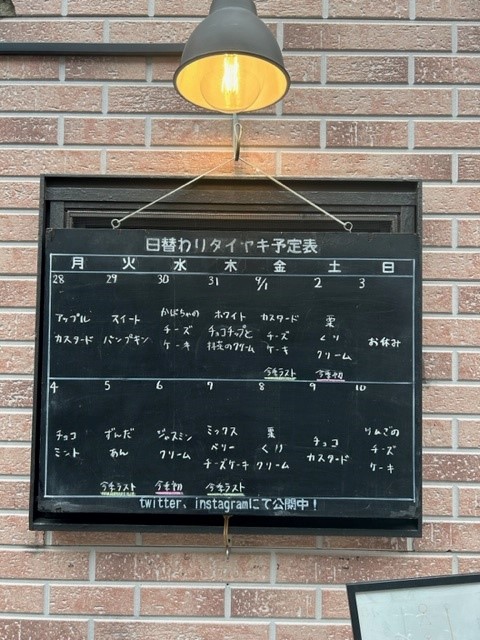 日替わりタイヤキ予定表
月 火 水 木 金 土 日
28 29 30 31 9/1 2 3
アップル スイート かぼちゃの ホワイト カスタード 栗
カスタード パンプキン チーズ チョコチップと チーズ くり お休み
ケーキ クリーム ケーキ クリーム
今季ラスト 今季初
4 5 6 7 8 9 10
チョコ ずんだ ジャスミン ミックス 栗 チョコ りんごの
ミント あん クリーム ベリー くり カスタード チーズ
チーズケーキ クリーム ケーキ
今季ラスト 今季初 今季ラスト
twitter、instagramにて公開中！